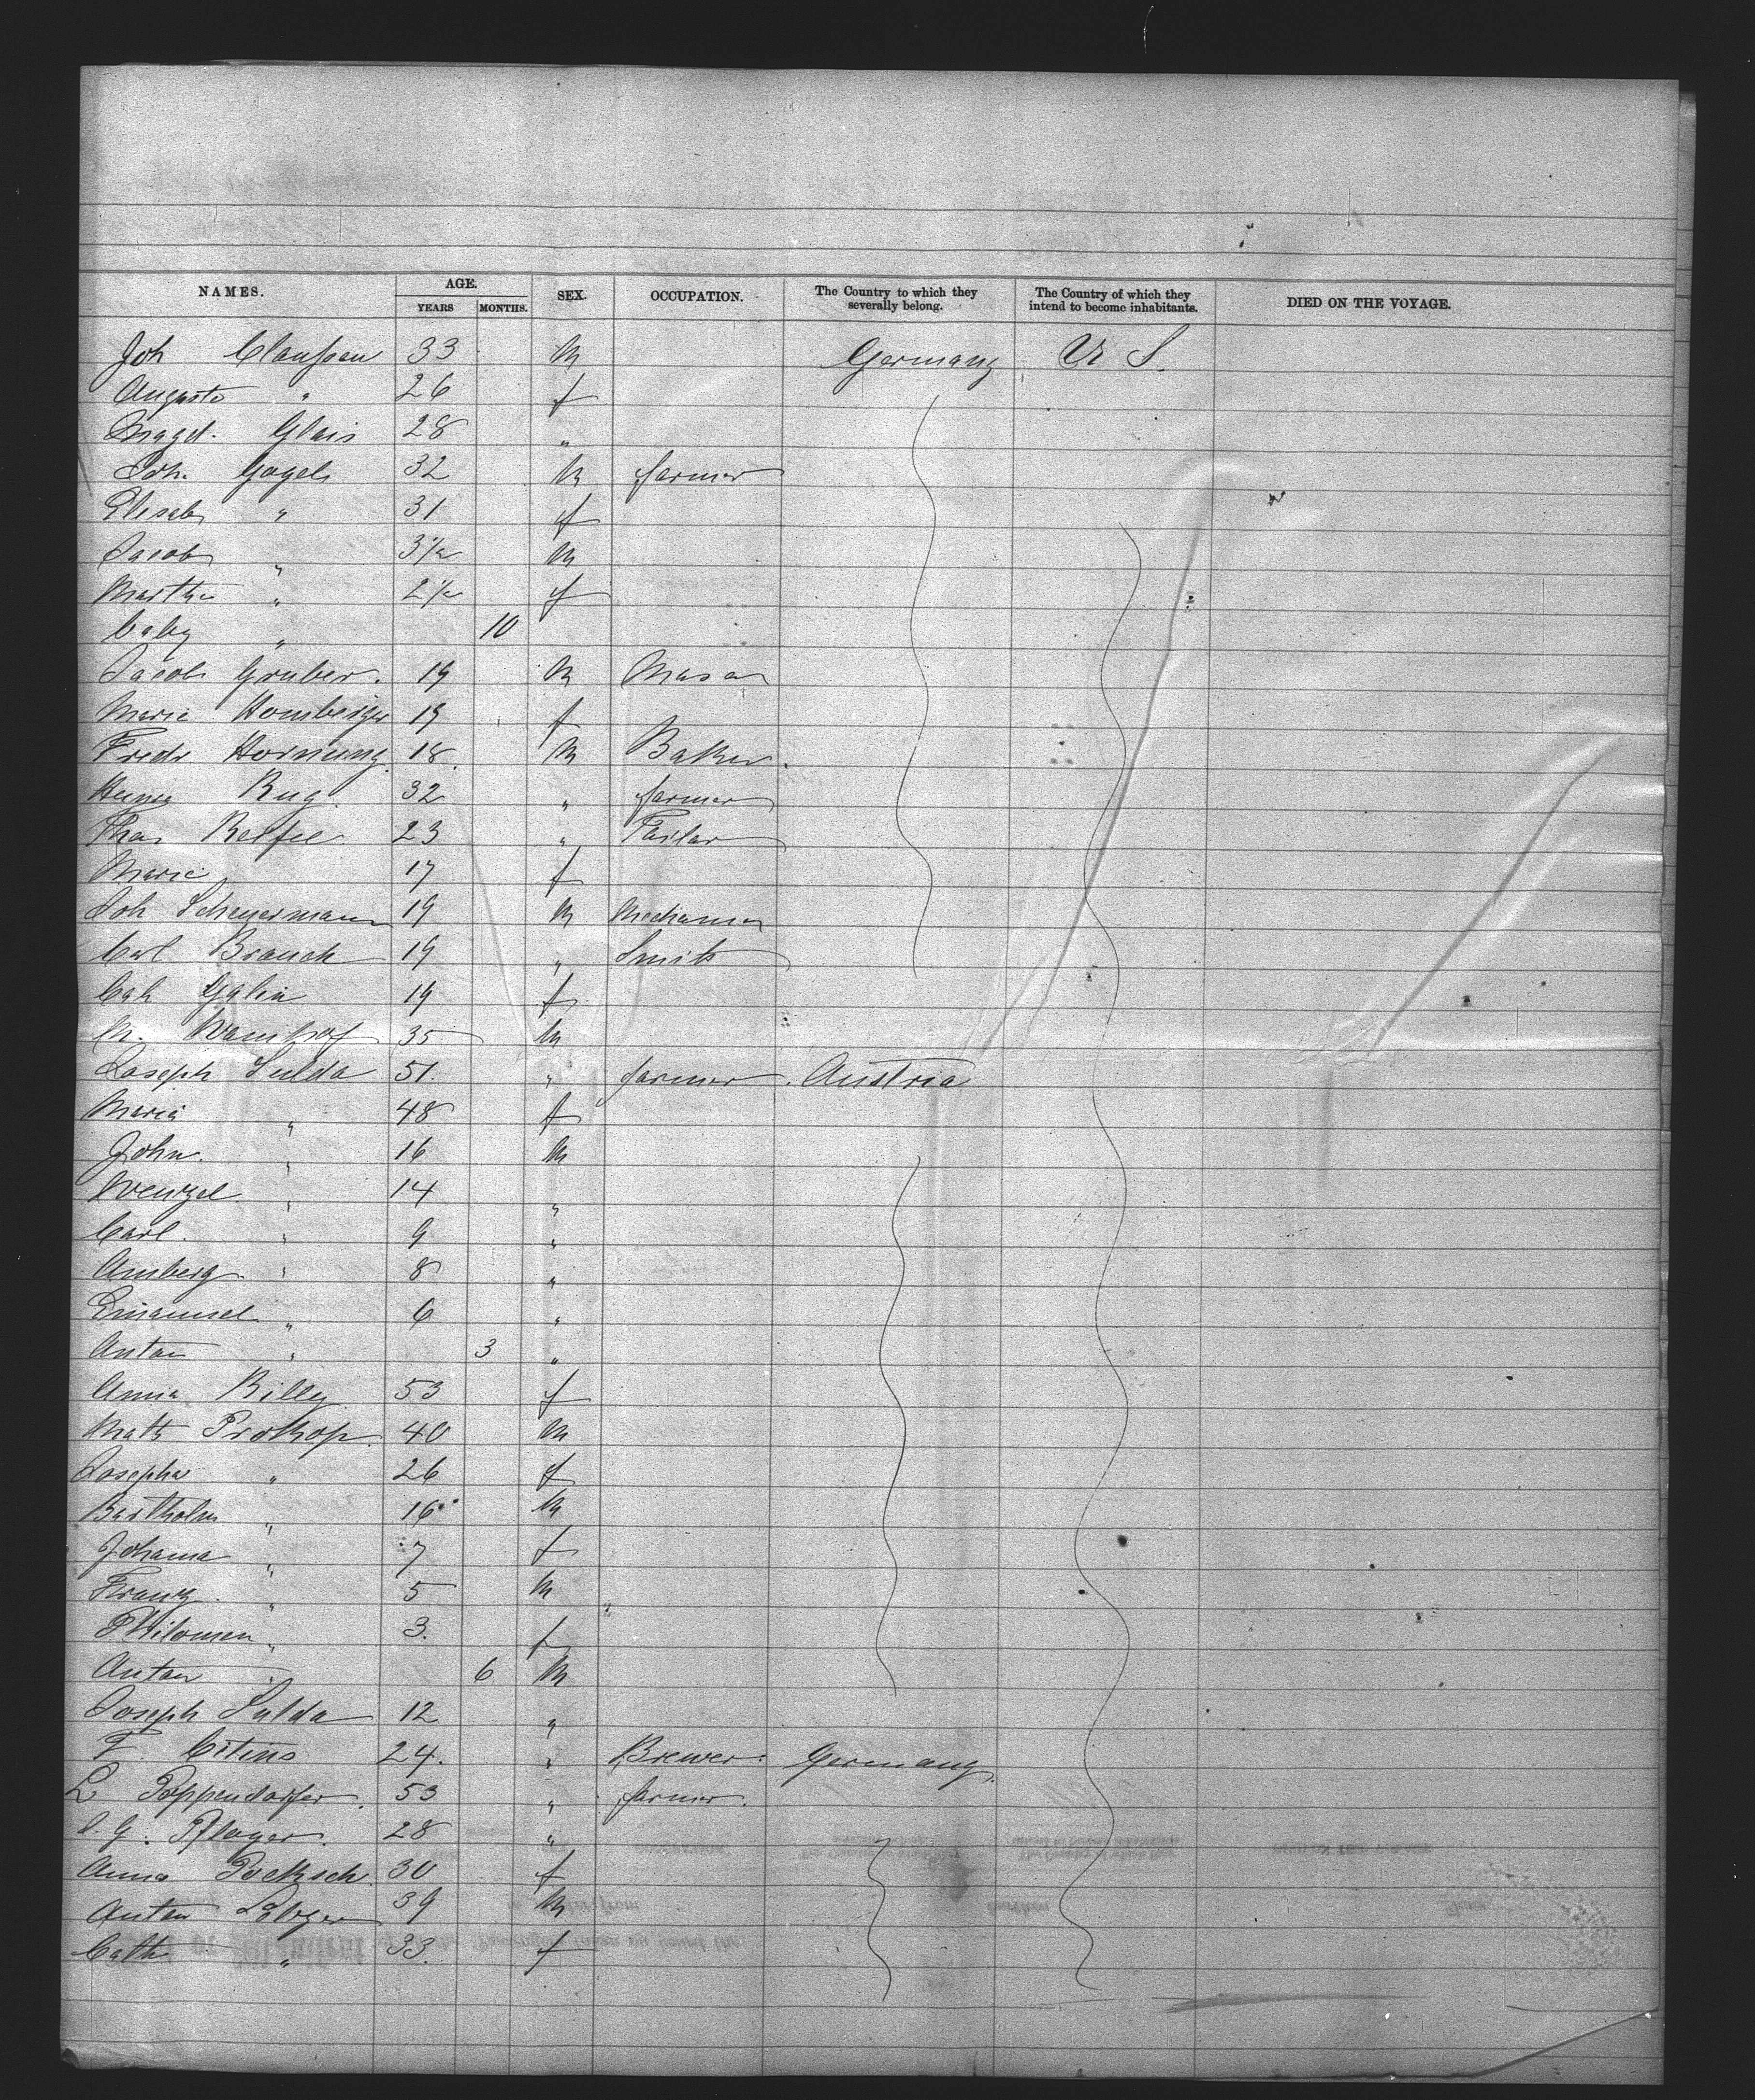 NAMES. AGE. YEARS MONTHS. SEX. OCCUPATION. The Country to which they severally belong. The Country of which they intend to become inhabitants. DIED ON THE VOYAGE.
Joh Claussen 33 M Germany U S.
Auguste " 26 f
Magd. Glais 28 "
Joh. Gogel 32 M farmer
Elisab " 31 f
Jacob " 3 1/2 M
Martha " 2 1/2 f
baby " 10
Jacob Gruber. 19 M Mason
Marie Homberger 19 f
Fredr Hornung 18. M Baker.
Henry Rug. 32 " farmer
23 " Tailor
Marie 17 f
Joh Scheuermann 19 M Mechanic
Carl Brauch 19 " Smith
Cath 19 f
M. 35 M
Joseph Sulda 51. " farmer. Austria
Maria " 48 f
John. " 16 M
Wenzel " 14 "
Carl. " 9 "
Amberg. " 8 "
Emanuel " 6 "
Anton " 3 "
Anna Billy 53 f
Math Prokop. 40 M
Josepha " 26 f
Bartholm " 16 M
Johanna " 7 f
Franz. " 5 M
Philomen " 3. f
Anton " 6 M
Joseph Sulda 12 "
F. 24. " Brewer. Germany.
L Poppendorfer. 53 " farmer.
Pflager. 28 "
Anna Poetzsch 30 f
Anton 39 M
Cath " 33. f